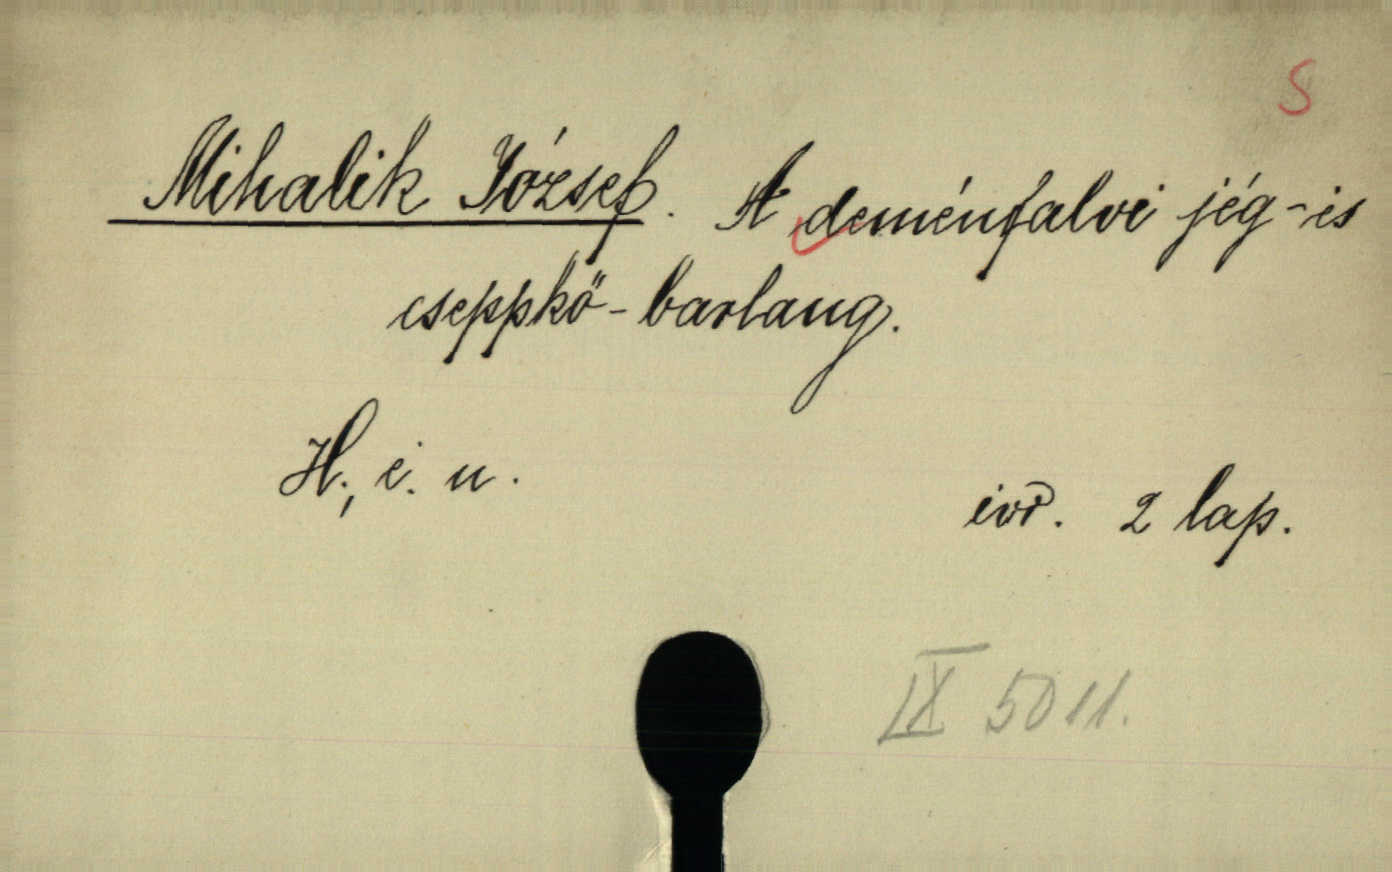 S
Mihalik József. A deménfalvi jég-és
cseppkő-barlang.
H., é. n.
ívr. 2 lap.
IX 5011.